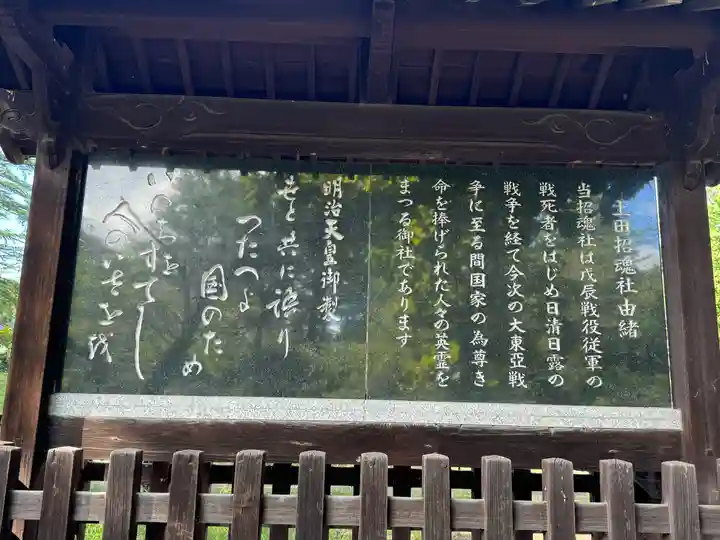 上田招魂社由緒
当招魂社は戊辰戦役従軍の
戦死者をはじめ日清日露の
戦争を経て今次の大東亜戦
争に至る間国家の為尊き
命を捧げられた人々の英霊を
まつる御社であります
明治天皇御製
世と共に語り
つたへよ
国のため
いのちを
すてし
人のいさを越